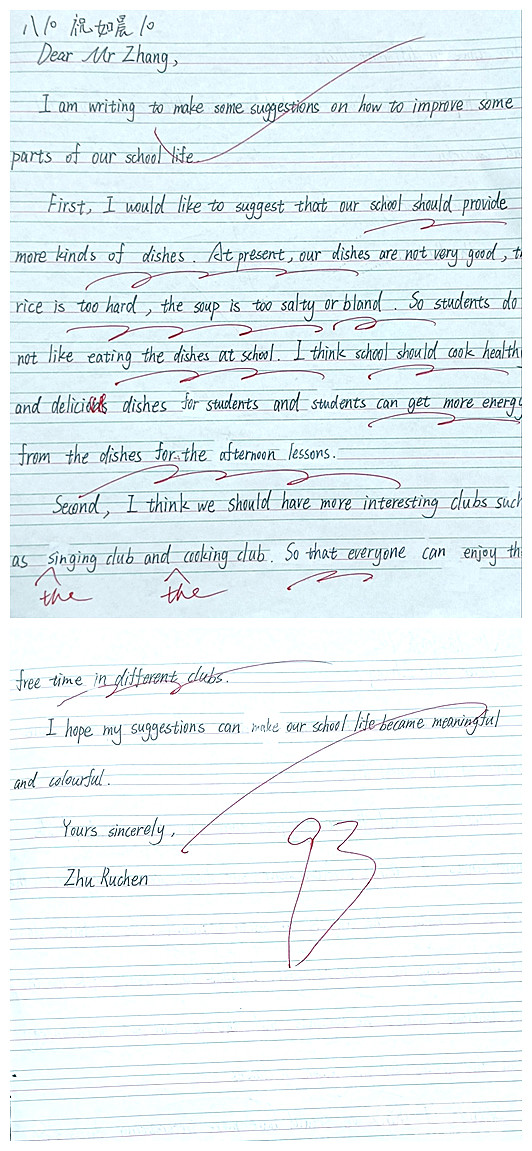 八10 祝如晨 10
Dear Mr Zhang,
I am writing to make some suggestions on how to improve some
parts of our school life.
First, I would like to suggest that our school should provide
more kinds of dishes. At present, our dishes are not very good, t
rice is too hard, the soup is too salty or bland. So students do
not like eating the dishes at school. I think school should cook health
and delicious dishes for students and students can get more energy
from the dishes for the afternoon lessons.
Second, I think we should have more interesting clubs such
as singing club and cooking club. So that everyone can enjoy th
the the
free time in different clubs.
I hope my suggestions can make our school life became meaningful
and colourful.
Yours sincerely,
Zhu Ruchen
93